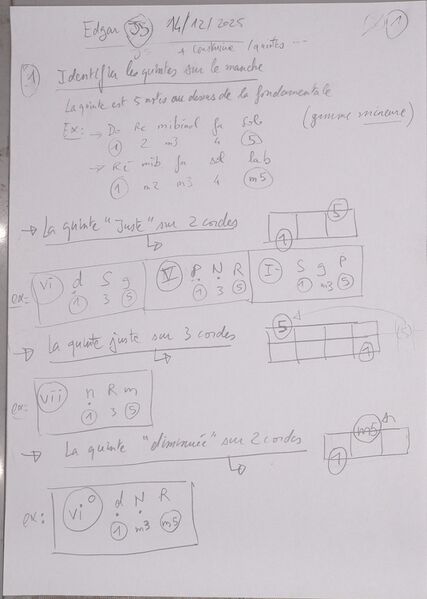 Edgar J5 14/12/2025 1
+ construire /quintes ...
1 Identifier les quintes sur le manche
La quinte est 5 notes au dessus de la fondamentale
Ex: → Do Re mibémol fa Sol (gamme mineure)
1 2 m3 4 5
→ Ré mib fa sol lab
1 m2 m3 4 m5
→ La quinte "Juste" sur 2 cordes
5
1
ex: vi d S g V P N R I- S g P
1 3 5 1 3 5 1 m3 5
→ La quinte juste sur 3 cordes
5 (5)
1
ex: vii n R m
1 3 5
→ La quinte "diminuée" sur 2 cordes
m5
1
ex: vi° d N R
1 m3 m5